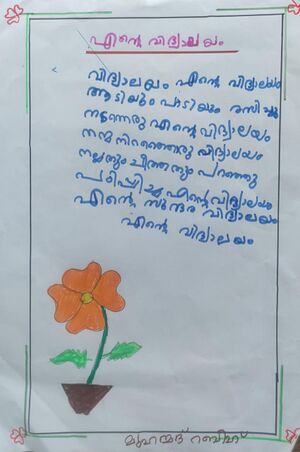 എന്റെ വിദ്യാലയം
വിദ്യാലയം എന്റെ വിദ്യാലയം
ആടിയും പാടിയും രസിച്ചു
നടന്നൊരു എന്റെ വിദ്യാലയം
നന്മ നിറഞ്ഞൊരു വിദ്യാലയം
നല്ലതും ചീത്തതും പറഞ്ഞു
പഠിപ്പിച്ച എന്റെ വിദ്യാലയം
എന്റെ സുന്ദര വിദ്യാലയം
എന്റെ വിദ്യാലയം
മുഹമ്മദ് റബീഹ്